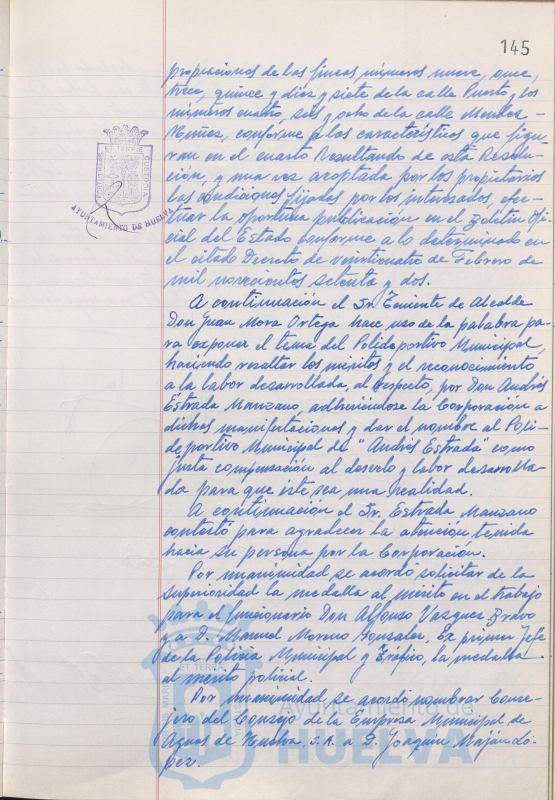 145
propiaciones de las fincas números nueve, once,
trece, quince y diez y siete de la calle Puerto y los
números cuatro, seis y ocho de la calle Mendez-
Nuñez, conforme a las características que figu-
ran en el cuarto Resultando de esta Resolu-
ción, y una vez aceptada por los propietarios
las condiciones fijadas por los interesados, efec-
tuar la oportuna publicación en el Boletín Ofi-
cial del Estado conforme a lo determinado en
el citado Decreto de veinticuatro de Febrero de
mil novecientos setenta y dos.
A continuación el Sr. Teniente de Alcalde
Don Juan Mora Ortega hace uso de la palabra pa-
ra exponer el tema del Polideportivo Municipal,
haciendo resaltar los méritos y el reconocimiento
a la labor desarrollada, al respecto, por Don Andrés
Estrada Manzano, adhiriéndose la Corporación a
dichas manifestaciones y dar el nombre al Poli-
deportivo Municipal de "Andrés Estrada" como
justa compensación al desvelo y labor desarrolla-
da para que éste sea una realidad.
A continuación el Sr. Estrada Manzano
contestó para agradecer la atención tenida
hacia su persona por la Corporación.
Por unanimidad se acordó solicitar de la
superioridad la medalla al mérito en el trabajo
para el funcionario Don Alfonso Vazquez Bravo
y a D. Manuel Moreno Gonzalez, Ex primer Jefe
de la Policia Municipal y Tráfico, la medalla
al mérito policial.
Por unanimidad se acordó nombrar Conse-
jero del Consejo de la Empresa Municipal de
Aguas de Huelva, S.A. a D. Joaquín Maján Ló-
pez.
CUSTODIA
AYUNTAMIENTO DE HUELVA
Ayuntamiento de
HUELVA